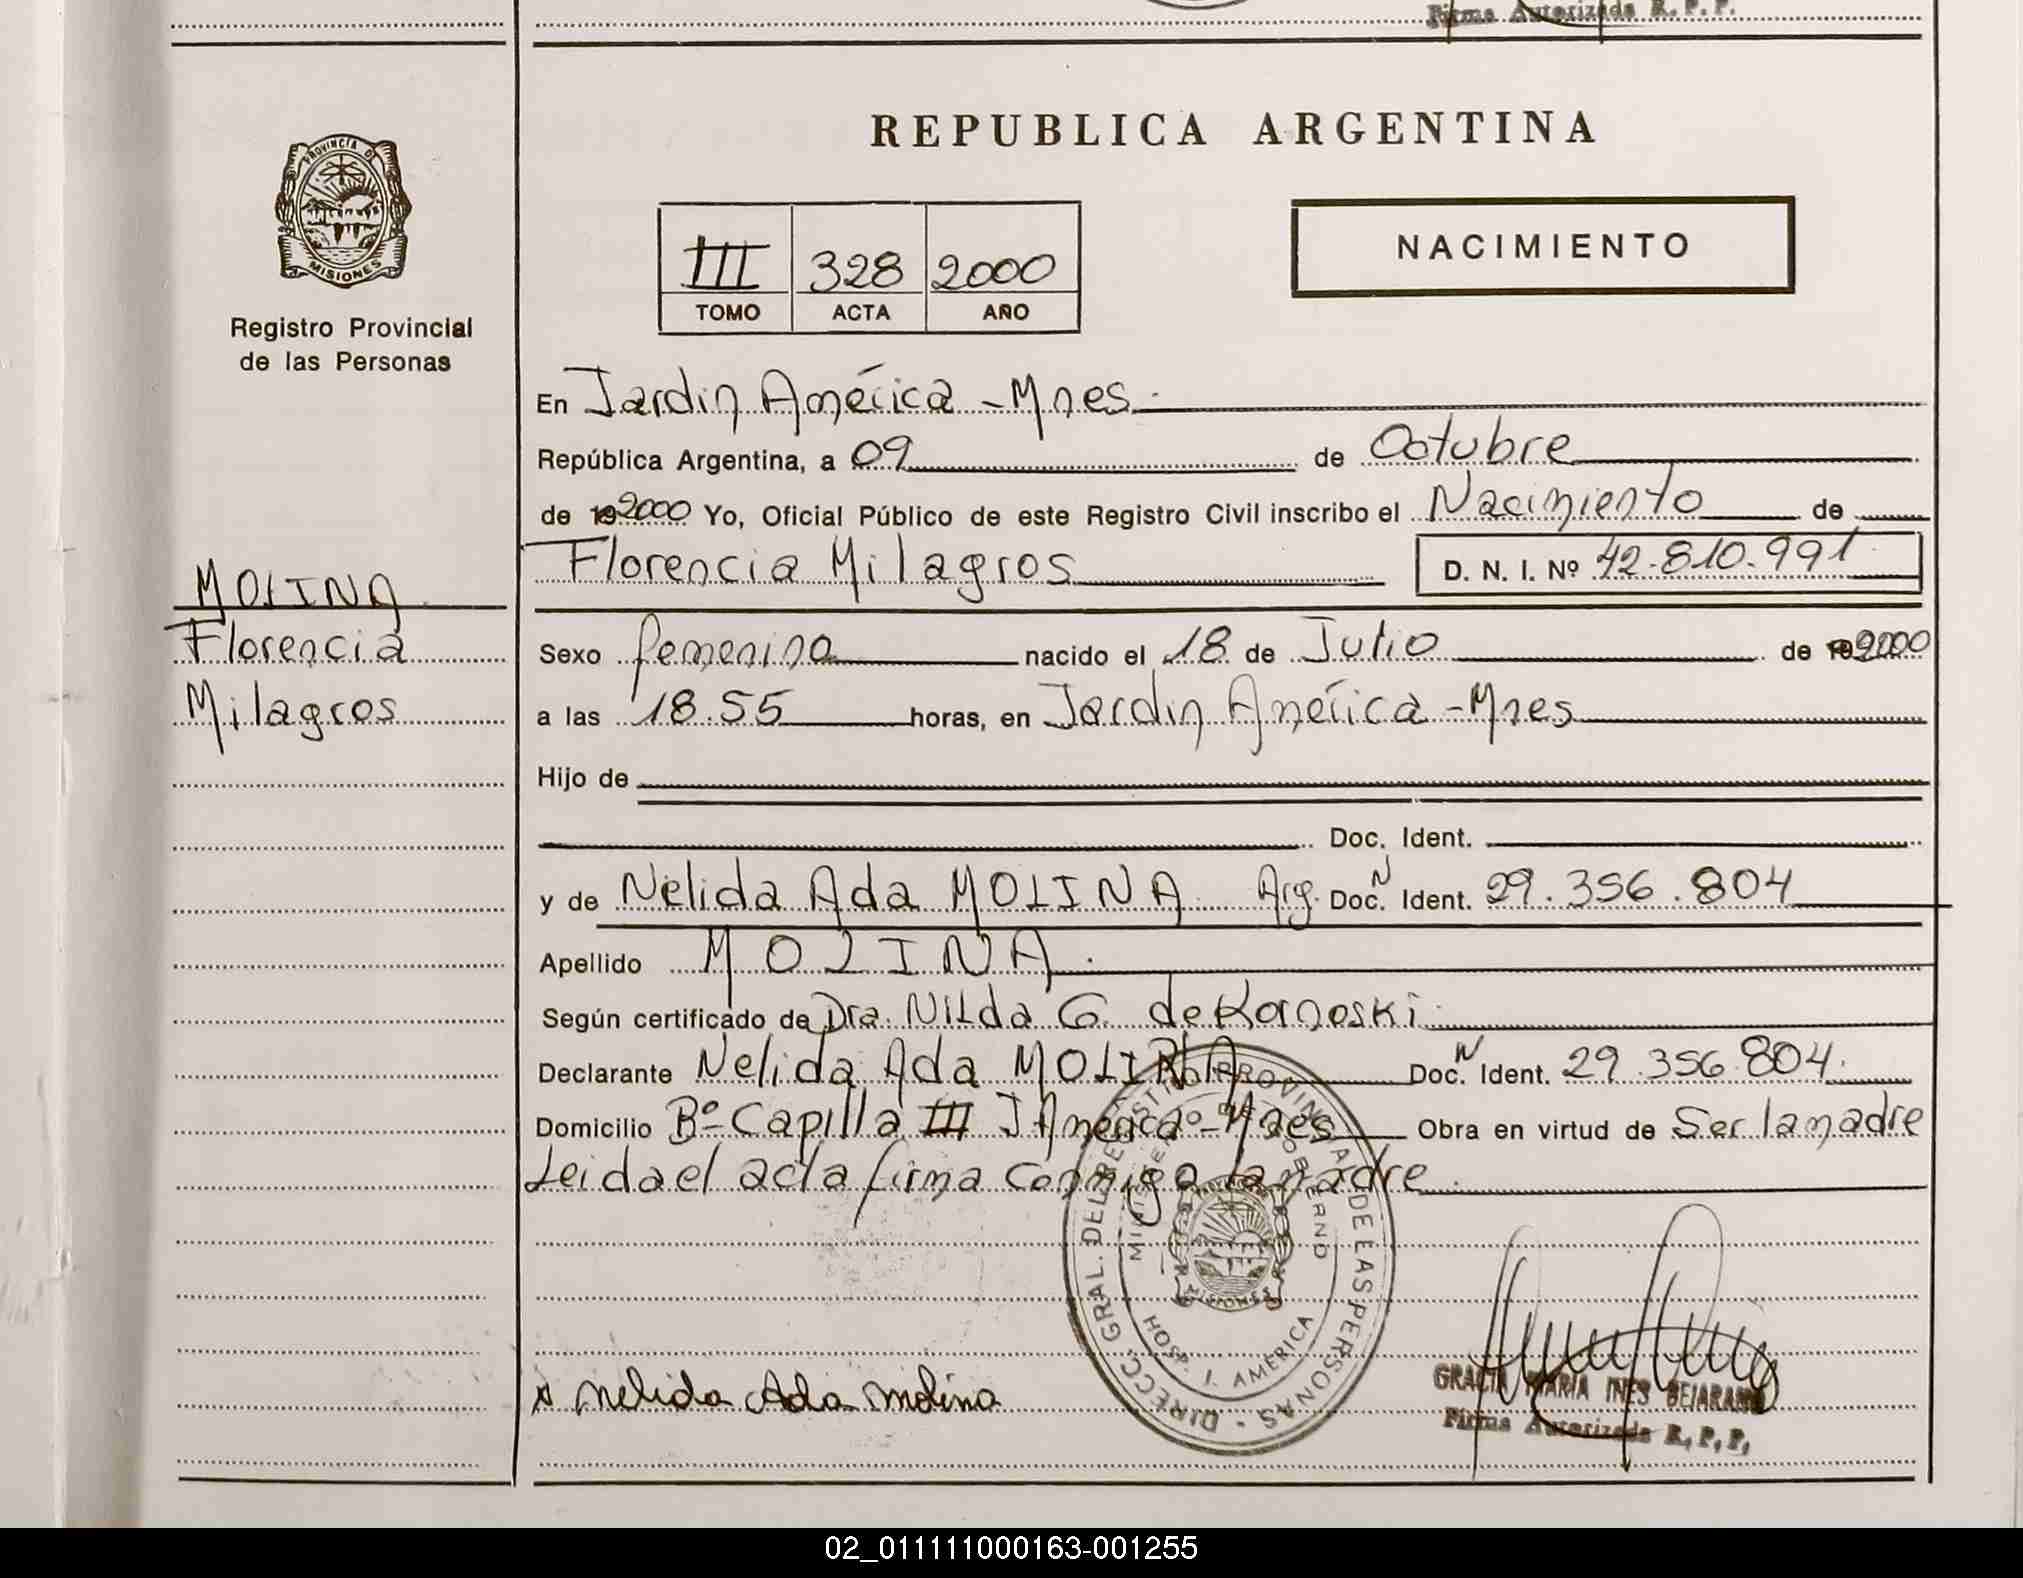 Firma Autorizada R. P. P.
REPUBLICA ARGENTINA
PROVINCIA DE
MISIONES
Registro Provincial
de las Personas
III 328 2000
TOMO ACTA AÑO
NACIMIENTO
En Jardin América - Mnes.
República Argentina, a 09 de Octubre
de 192000 Yo, Oficial Público de este Registro Civil inscribo el Nacimiento de
Florencia Milagros D. N. I. Nº 42.810.991
MOLINA
Florencia
Milagros
Sexo femenina nacido el 18 de Julio de 192000
a las 18.55 horas, en Jardin América - Mnes
Hijo de
Doc. Ident.
y de Nelida Ada MOLINA Arg. Doc. N Ident. 29.356.804
Apellido MOLINA.
Según certificado de Dra. Nilda G. de Kornoski.
Declarante Nelida Ada MOLINA Doc. N Ident. 29.356.804.
Domicilio Bº Capilla III J América - Mnes Obra en virtud de Ser la madre
Leida el acta firma conmigo la madre.
DIRECC. GRAL. DEL REGISTRO PROVINCIAL DE LAS PERSONAS -
MINISTERIO DE GOBIERNO
MISIONES
HOSP. J. AMERICA
x Nelida Ada Molina
GRACIA MARIA INES BEJARANO
Firma Autorizada R. P. P.
02_011111000163-001255